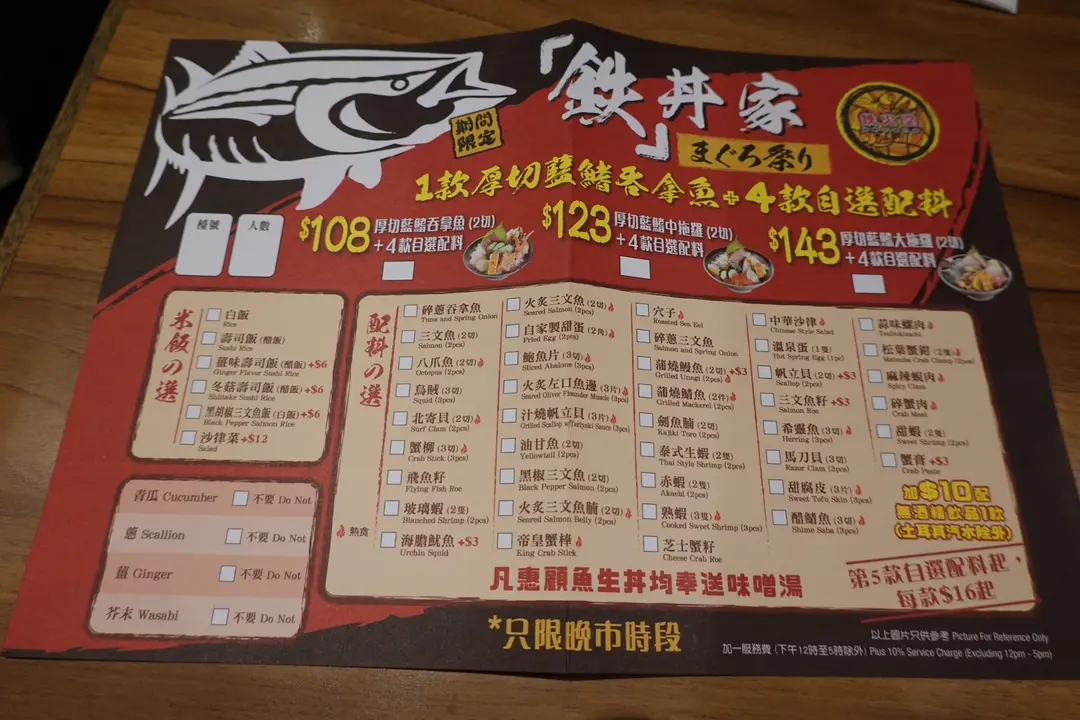 「鉄丼家」
期間
限定
まぐろ祭り
1款厚切藍鰭吞拿魚+4款自選配料
檯號
人數
$108 厚切藍鰭吞拿魚 (2切)
+4款自選配料
$123 厚切藍鰭中拖羅 (2切)
+4款自選配料
$143 厚切藍鰭大拖羅 (2切)
+4款自選配料
米飯の選
白飯
Rice
壽司飯 (醋飯)
Sushi Rice
薑味壽司飯 (醋飯) +$6
Ginger Flavor Sushi Rice
冬菇壽司飯 (醋飯) +$6
Shiitake Sushi Rice
黑胡椒三文魚飯 (白飯) +$6
Black Pepper Salmon Rice
沙律菜 +$12
Salad
青瓜 Cucumber 不要 Do Not
蔥 Scallion 不要 Do Not
薑 Ginger 不要 Do Not
芥末 Wasabi 不要 Do Not
配料の選
熟食
碎蔥吞拿魚
Tuna and Spring Onion
三文魚 (2切)
Salmon (2pcs)
八爪魚 (2切)
Octopus (2pcs)
烏賊 (3切)
Squid (3pcs)
北寄貝 (2切)
Surf Clam (2pcs)
蟹柳 (3切)
Crab Stick (3pcs)
飛魚籽
Flying Fish Roe
玻璃蝦 (2隻)
Blanched Shrimp (2pcs)
海膽魷魚 +$3
Urchin Squid
火炙三文魚 (2切)
Seared Salmon (2pcs)
自家製甜蛋 (2角)
Fried Egg (2pcs)
鮑魚片 (3切)
Sliced Abalone (3pcs)
火炙左口魚邊 (3片)
Seared Oliver Flounder Muscle (3pcs)
汁燒帆立貝 (3片)
Grilled Scallop w/Teriyaki Sauce (3pcs)
油甘魚 (2切)
Yellowtail (2pcs)
黑椒三文魚 (2切)
Black Pepper Salmon (2pcs)
火炙三文魚腩 (2切)
Seared Salmon Belly (2pcs)
帝皇蟹棒
King Crab Stick
穴子
Roasted Sea Eel
碎蔥三文魚
Salmon and Spring Onion
蒲燒鰻魚 (2切) +$3
Grilled Unagi (2pcs)
蒲燒鯖魚 (2件)
Grilled Mackerel (2pcs)
劍魚腩 (2切)
Kajiki Toro (2pcs)
泰式生蝦 (2隻)
Thai Style Shrimp (2pcs)
赤蝦 (2隻)
Akashi (2pcs)
熟蝦 (3隻)
Cooked Sweet Shrimp (3pcs)
芝士蟹籽
Cheese Crab Roe
中華沙律
Chinese Style Salad
溫泉蛋 (1隻)
Hot Spring Egg (1pc)
帆立貝 (2切) +$3
Scallop (2pcs)
三文魚籽 +$3
Salmon Roe
希靈魚 (3切)
Herring (3pcs)
馬刀貝 (3切)
Razor Clam (3pcs)
甜腐皮 (3片)
Sweet Tofu Skin (3pcs)
醋鯖魚 (3切)
Shime Saba (3pcs)
蒜味螺肉
Tsubukizchi
松葉蟹鉗 (2隻)
Matsuba Crab Clamp (2pcs)
麻辣蜆肉
Spicy Clam
碎蟹肉
Crab Meat
甜蝦 (2隻)
Sweet Shrimp (2pcs)
蟹膏 +$3
Crab Paste
加$10配
無酒精飲品1款
(土耳其汽水除外)
凡惠顧魚生丼均奉送味噌湯
第5款自選配料起,
每款$16起
*只限晚市時段
以上圖片只供參考 Picture For Reference Only
加一服務費 (下午12時至5時除外) Plus 10% Service Charge (Excluding 12pm - 5pm)